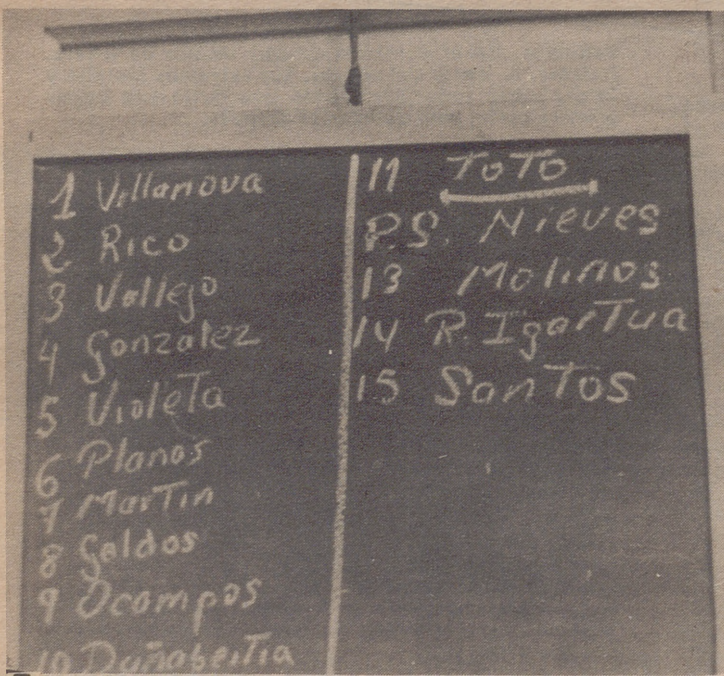 1 Villanova
2 Rico
3 Vallejo
4 Gonzalez
5 Violeta
6 Planas
7 Martin
8 Galdos
9 Ocampos
10 Duñabeitia
11 ToTo
P.S. Nieves
13 Molinos
14 R. Igartua
15 Santos